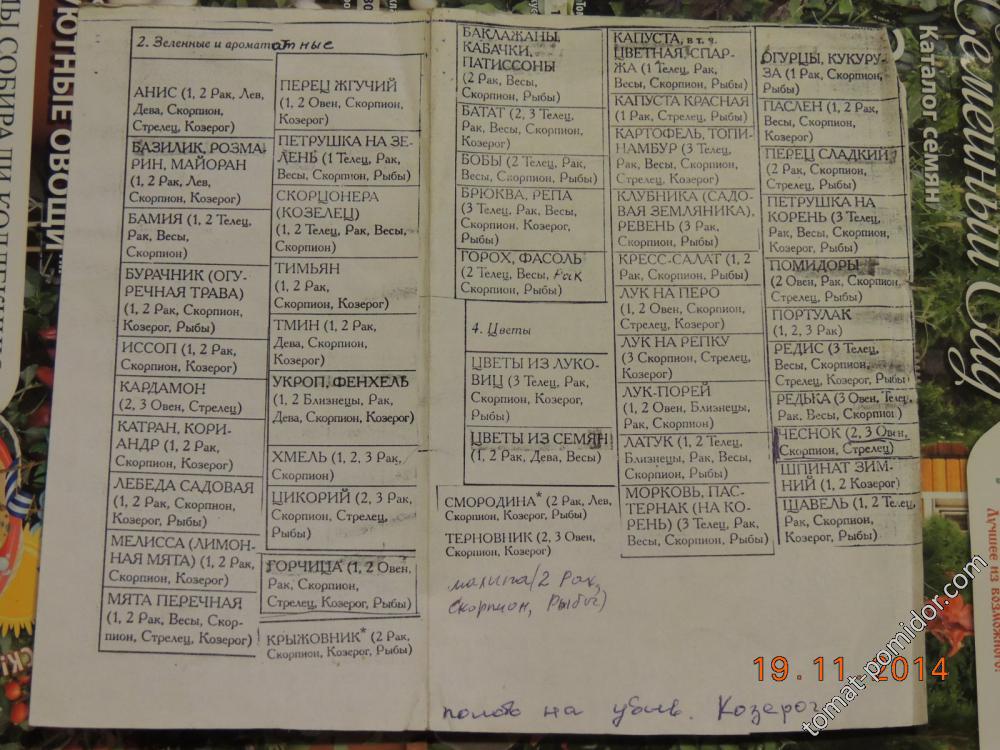 2. Зеленные и ароматные
АНИС (1, 2 Рак, Лев,
Дева, Скорпион,
Стрелец, Козерог)
БАЗИЛИК, РОЗМА
РИН, МАЙОРАН
(1, 2 Рак, Лев,
Скорпион, Козерог)
БАМИЯ (1, 2 Телец,
Рак, Весы,
Скорпион)
БУРАЧНИК (ОГУ-
РЕЧНАЯ ТРАВА)
(1, 2 Рак, Скорпион,
Козерог, Рыбы)
ИССОП (1, 2 Рак,
Скорпион, Козерог)
КАРДАМОН
(2, 3 Овен, Стрелец)
КАТРАН, КОРИ-
АНДР (1, 2 Рак,
Скорпион, Козерог)
ЛЕБЕДА САДОВАЯ
(1, 2 Рак, Скорпион,
Козерог, Рыбы)
МЕЛИССА (ЛИМОН-
НАЯ МЯТА) (1, 2 Рак,
Скорпион, Козерог)
МЯТА ПЕРЕЧНАЯ
(1, 2 Рак, Весы, Скор-
пион, Стрелец, Козерог)
ПЕРЕЦ ЖГУЧИЙ
(1, 2 Овен, Скорпион,
Козерог)
ПЕТРУШКА НА ЗЕ-
ЛЕНЬ (1 Телец, Рак,
Весы, Скорпион, Рыбы)
СКОРЦОНЕРА
(КОЗЕЛЕЦ)
(1, 2 Телец, Рак, Весы,
Скорпион)
ТИМЬЯН
(1, 2 Рак,
Скорпион, Козерог)
ТМИН (1, 2 Рак,
Дева, Скорпион,
Козерог)
УКРОП, ФЕНХЕЛЬ
(1, 2 Близнецы, Рак,
Дева, Скорпион, Козерог)
ХМЕЛЬ (1, 2, 3 Рак,
Скорпион)
ЦИКОРИЙ (2, 3 Рак,
Скорпион, Стрелец,
Рыбы)
ГОРЧИЦА (1, 2 Овен,
Рак, Скорпион,
Стрелец, Козерог, Рыбы)
КРЫЖОВНИК* (2 Рак,
Скорпион, Козерог, Рыбы)
БАКЛАЖАНЫ,
КАБАЧКИ,
ПАТИССОНЫ
(2 Рак, Весы,
Скорпион, Рыбы)
БАТАТ (2, 3 Телец,
Рак, Весы, Скорпион,
Козерог)
БОБЫ (2 Телец, Рак,
Весы, Скорпион, Рыбы)
БРЮКВА, РЕПА
(3 Телец, Рак, Весы,
Скорпион, Козерог,
Рыбы)
ГОРОХ, ФАСОЛЬ
(2 Телец, Весы, Рак
Скорпион, Рыбы)
4. Цветы
ЦВЕТЫ ИЗ ЛУКО-
ВИЦ (3 Телец, Рак,
Скорпион, Козерог,
Рыбы)
ЦВЕТЫ ИЗ СЕМЯН
(1, 2 Рак, Дева, Весы)
СМОРОДИНА* (2 Рак, Лев,
Скорпион, Козерог, Рыбы)
ТЕРНОВНИК (2, 3 Овен,
Скорпион, Козерог)
малина (2 Рак,
Скорпион, Рыбы)
КАПУСТА, в т. ч.
ЦВЕТНАЯ, СПАР-
ЖА (1 Телец, Рак,
Весы, Скорпион, Рыбы)
КАПУСТА КРАСНАЯ
(1 Рак, Стрелец, Рыбы)
КАРТОФЕЛЬ, ТОПИ-
НАМБУР (3 Телец,
Рак, Весы, Скорпион,
Стрелец, Козерог)
КЛУБНИКА (САДО-
ВАЯ ЗЕМЛЯНИКА),
РЕВЕНЬ (3 Рак,
Скорпион, Рыбы)
КРЕСС-САЛАТ (1, 2
Рак, Скорпион, Рыбы)
ЛУК НА ПЕРО
(1, 2 Овен, Скорпион,
Стрелец, Козерог)
ЛУК НА РЕПКУ
(3 Скорпион, Стрелец,
Козерог)
ЛУК-ПОРЕЙ
(1, 2 Овен, Близнецы,
Рак, Скорпион)
ЛАТУК (1, 2 Телец,
Близнецы, Рак, Весы,
Скорпион, Рыбы)
МОРКОВЬ, ПАС-
ТЕРНАК (НА КО-
РЕНЬ) (3 Телец, Рак,
Весы, Скорпион, Рыбы)
ОГУРЦЫ, КУКУРУ-
ЗА (1 Рак, Скорпион,
Рыбы)
ПАСЛЕН (1, 2 Рак,
Скорпион, Весы,
Козерог)
ПЕРЕЦ СЛАДКИЙ
(2 Рак, Скорпион,
Стрелец, Рыбы)
ПЕТРУШКА НА
КОРЕНЬ (3 Телец,
Рак, Весы, Скорпион,
Козерог, Рыбы)
ПОМИДОРЫ
(2 Овен, Рак, Скорпион,
Стрелец, Рыбы)
ПОРТУЛАК
(1, 2, 3 Рак)
РЕДИС (3 Телец,
Рак, Весы, Скорпион,
Стрелец, Козерог, Рыбы)
РЕДЬКА (3 Овен, Телец,
Рак, Весы, Скорпион)
ЧЕСНОК (2, 3 Овен,
Скорпион, Стрелец)
ШПИНАТ ЗИМ-
НИЙ (1, 2 Козерог)
ЩАВЕЛЬ (1, 2 Телец,
Рак, Скорпион,
Козерог, Рыбы)
полоть на убыв. Козерог
Каталог семян
Семейный сад
19.11.2014
tomat-pomidor.com